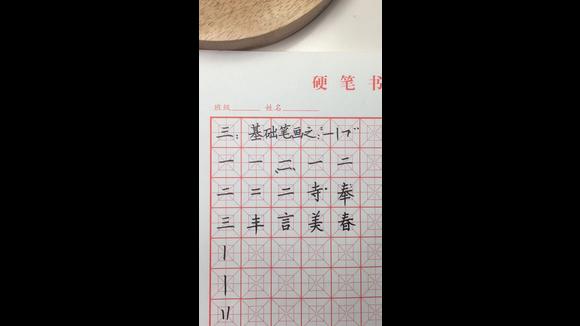 硬笔书
班级 姓名
三:基础笔画之:"一丨㇇"
一 一 二 一 二
二 二 二 寺 奉
三 丰 言 美 春
丨
丨